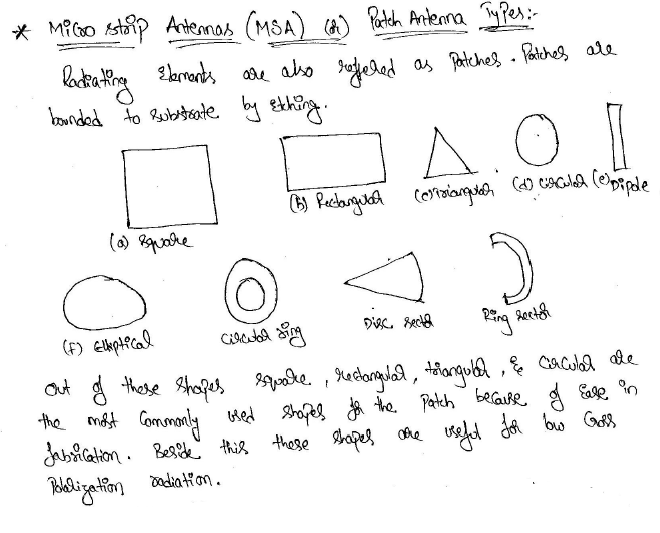 * Micro strip Antennas (MSA) (or) Patch Antenna Types:-
Radiating Elements are also reffered as Patches. Patches are
bounded to substrate by Etching.
(b) Rectangular (c) Triangular (d) Circular (e) Dipole
(a) Square
(f) Elliptical Circular ring Disc Sector Ring sector
Out of these shapes square, rectangular, triangular, & Circular are
the most Commonly used shapes for the Patch because of Ease in
fabrication. Beside this these shapes are useful for low Cross
Polarization radiation.